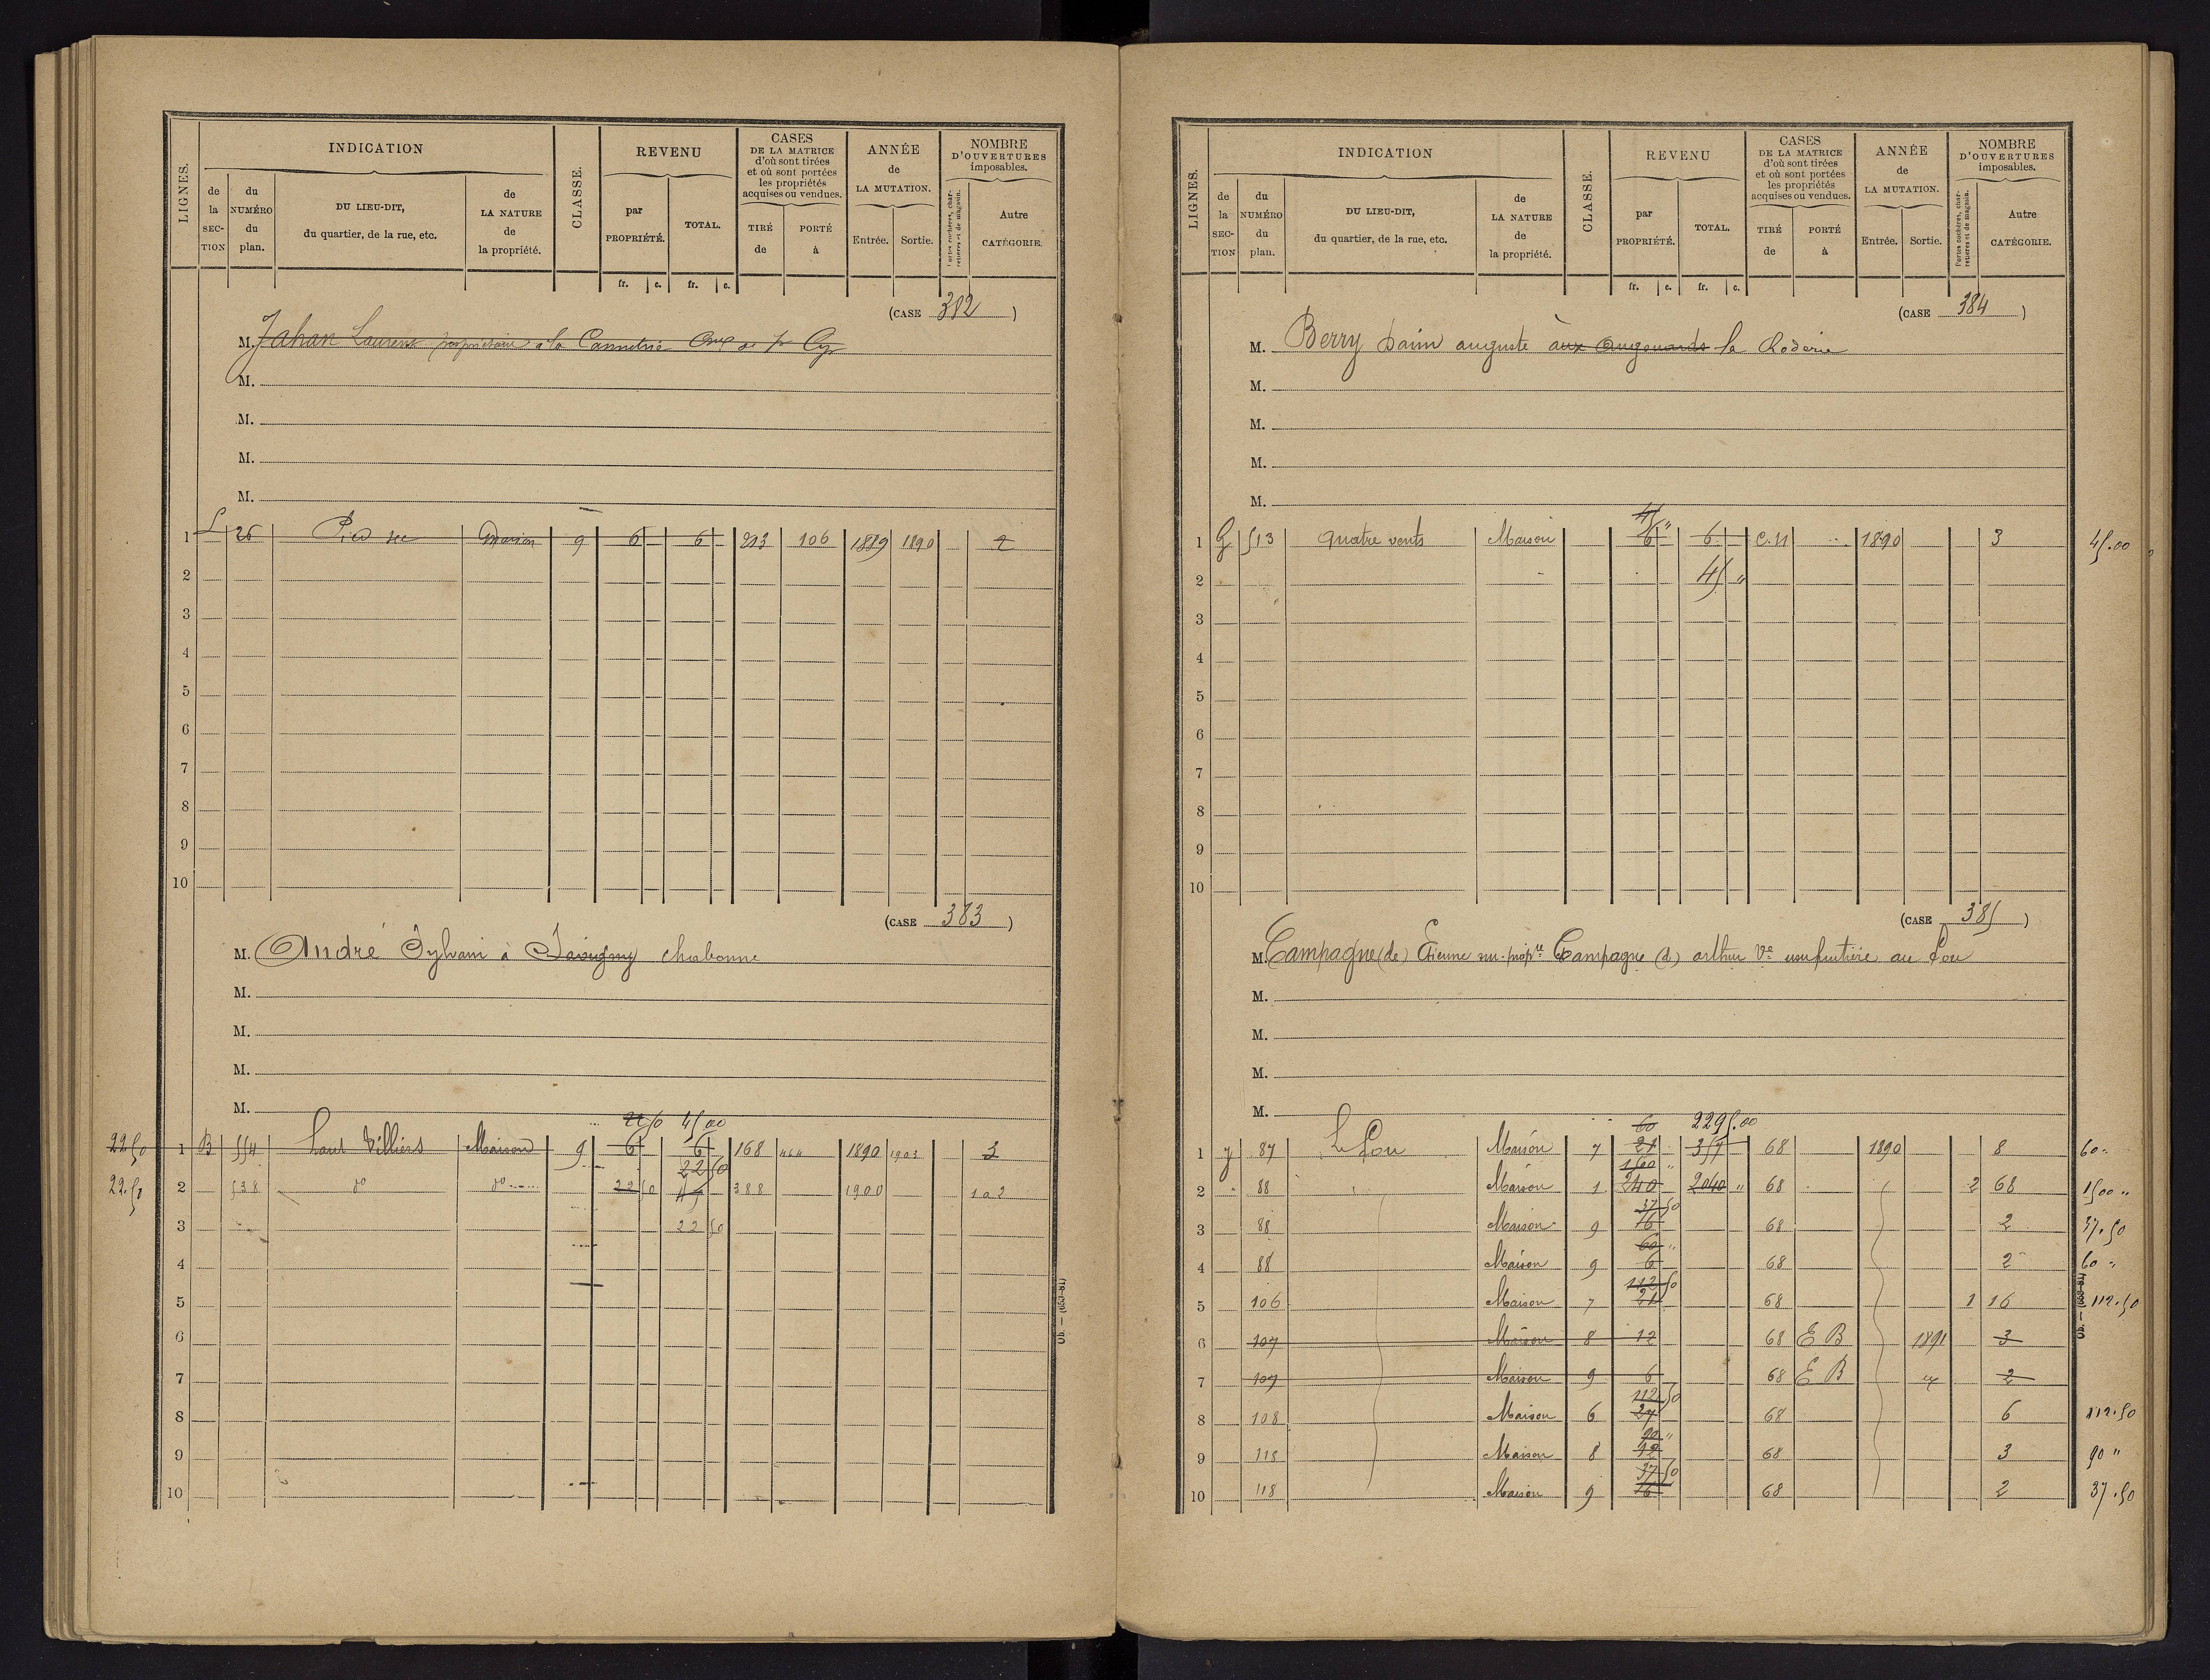 LIGNES.
INDICATION
CLASSE.
REVENU
CASES
DE LA MATRICE
d'où sont tirées
et où sont portées
les propriétés
acquises ou vendues.
ANNÉE
de
LA MUTATION.
NOMBRE
D'OUVERTURES
imposables.
de la SEC-TION
du NUMÉRO du plan.
DU LIEU-DIT,
du quartier, de la rue, etc.
de LA NATURE de la propriété.
par PROPRIÉTÉ.
TOTAL.
TIRÉ de
PORTÉ à
Entrée.
Sortie.
Portes cochères, charretières et de magasin.
Autre CATÉGORIE.
fr. c. fr. c.
(CASE 382)
M. Jahan Laurent propriétaire à la
M.
M.
M.
M.
1 L 26 Maison 9 6 6 213 106 1889 1890 2
2
3
4
5
6
7
8
9
10
(CASE 383)
M. André Sylvain à Savigny
M.
M.
M.
M.
22 50 45 00
22.50 1 B 554 haut Villiers Maison 9 6 6 168 464 1890 1903 3
22 50
22.50 2 538 do do 22 50 45 388 1900 1 a 2
3 22 50
4
5
6
7
8
9
10
LIGNES.
INDICATION
CLASSE.
REVENU
CASES
DE LA MATRICE
d'où sont tirées
et où sont portées
les propriétés
acquises ou vendues.
ANNÉE
de
LA MUTATION.
NOMBRE
D'OUVERTURES
imposables.
de la SEC-TION
du NUMÉRO du plan.
DU LIEU-DIT,
du quartier, de la rue, etc.
de LA NATURE de la propriété.
par PROPRIÉTÉ.
TOTAL.
TIRÉ de
PORTÉ à
Entrée.
Sortie.
Portes cochères, charretières et de magasin.
Autre CATÉGORIE.
fr. c. fr. c.
(CASE 384)
M. Berry Daim auguste aux la Roderie
M.
M.
M.
M.
45 "
1 G 513 quatre vents Maison 6 6 C.N 1890 3 45.00
2 45 "
3
4
5
6
7
8
9
10
(CASE 385)
M. Campagne (de) Etienne nu-propre Campagne (de) arthur Ve usufruitière au Lou
M.
M.
M.
M.
60 2295.00
1 y 87 Le Lou Maison 7 21 357 68 1890 8 60 "
1500 "
2 " 88 Maison 1 240 2040 " 68 2 68 1500 "
37 50
3 88 Maison 9 16 68 2 37.50
60 "
4 88 Maison 9 6 68 2 60 "
112 50
5 106 Maison 7 21 68 1 16 112.50
6 107 Maison 8 12 68 E B 1891 3
7 107 Maison 9 6 68 E B 2
112 50
8 108 Maison 6 27 68 6 112.50
90 "
9 118 Maison 8 12 68 3 90 "
37 50
10 118 Maison 9 16 68 2 37.50